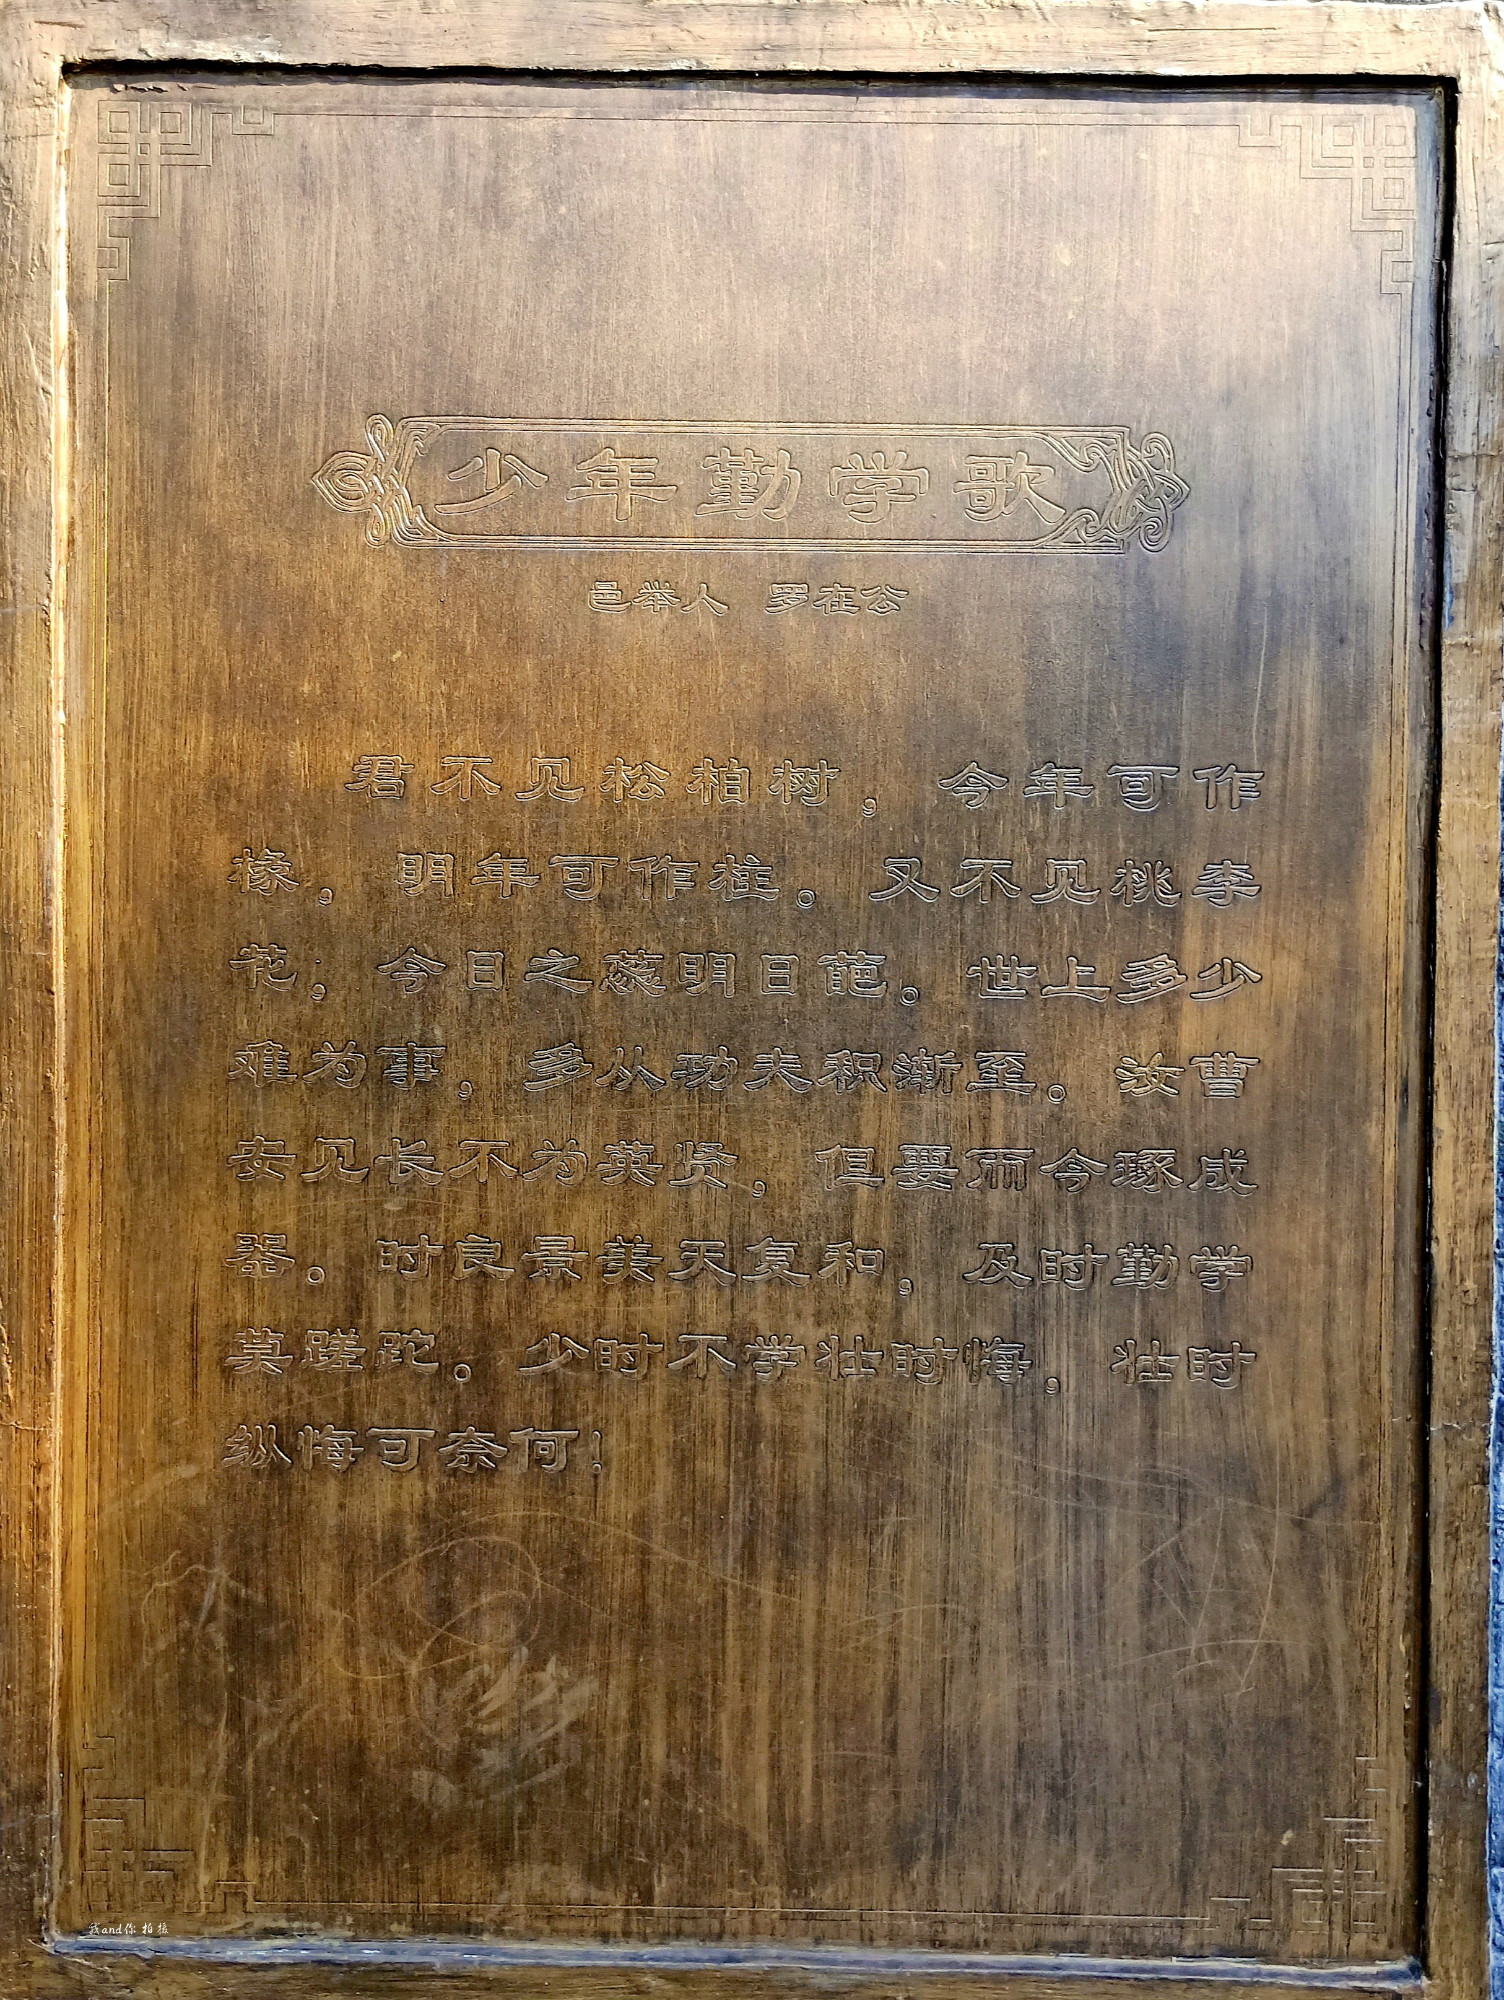 少年勤学歌
邑举人 罗在公
君不见松柏树，今年可作
椽，明年可作柱。又不见桃李
花，今日之蕊明日葩。世上多少
难为事，多从功夫积渐至。汝曹
安见长不为英贤，但要而今琢成
器。时良景美天复和，及时勤学
莫蹉跎。少时不学壮时悔，壮时
纵悔可奈何！
我and你 拍摄